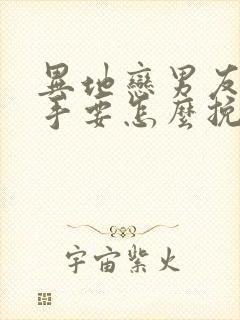 異地戀男友
手要怎麼挽
宇宙紫火